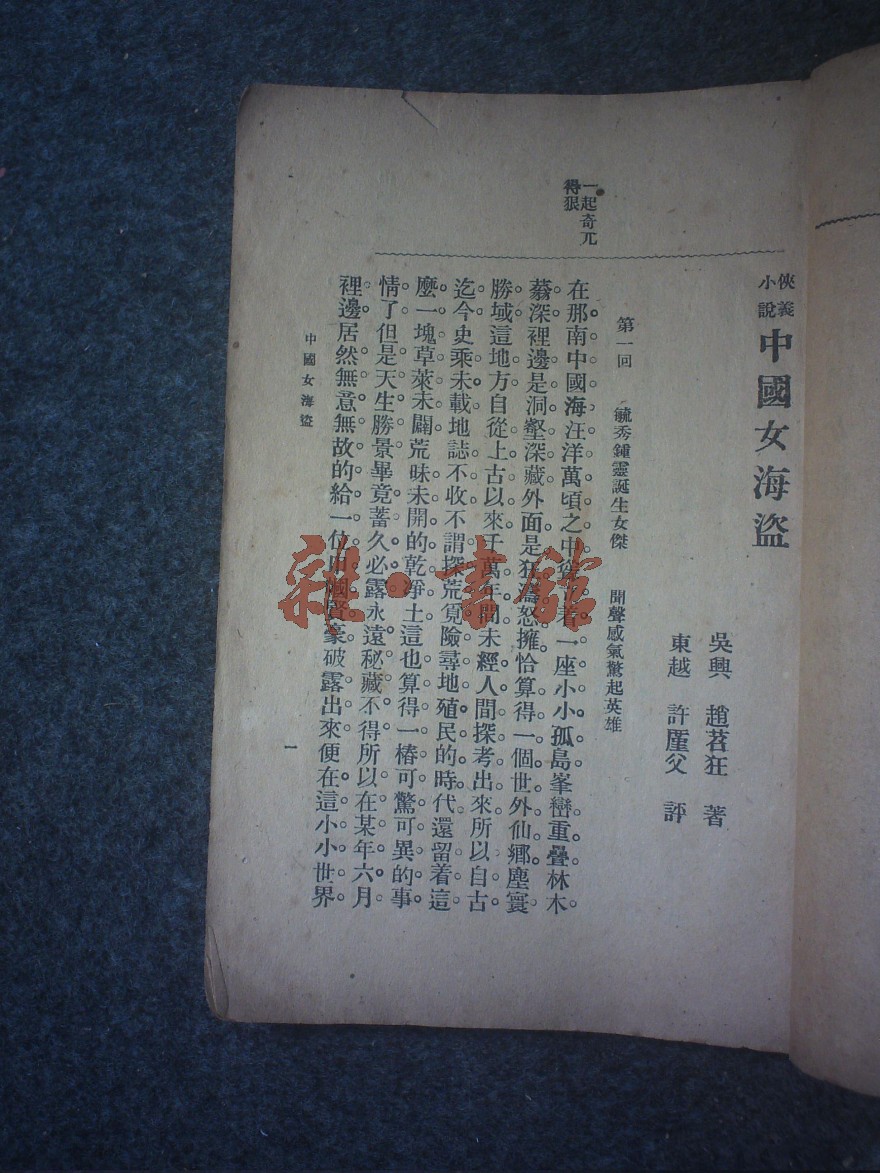 俠義小說
中國女海盜
吳興 趙苕狂 著
東越 許廑父 評
第一回 毓秀鍾靈誕生女傑 聞聲感氣驚起英雄
一起奇兀
得狠
在那南中國海汪洋萬頃之中 着一座小小孤島峯巒重疊林木
蓊深裡邊是洞壑深藏外面是狂濤怒擁恰算得一個世外仙鄉塵寰
勝域這地方自從上古以來千萬年間未經人間探考出來所以自古
迄今史乘未載地誌不收不謂探荒覓險尋地殖民的時代還留着這
麼一塊草萊未闢荒昧未開的乾淨土這也算得一樁可驚可異的事
情了但是天生勝景畢竟蓄久必露永遠秘藏不得所以在某年六月
裡邊居然無意無故的給一位巾幗賢豪破露出來便在這小小世界
中國女海盜
一
雜·書館